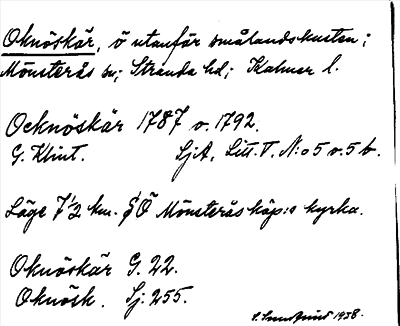 Oknöskär, ö utanför smålandskusten i
Mönsterås sn; Stranda hd; Kalmar l.
Ocknöskär 1787 o. 1792.
G. Klint. SjA, Litt. T. N:o 5 o. 5 b.
Läge 7 1/2 km. SÖ Mönsterås köp:s kyrka.
Oknöskär G. 22.
Oknösk. Sj. 255.
1938.